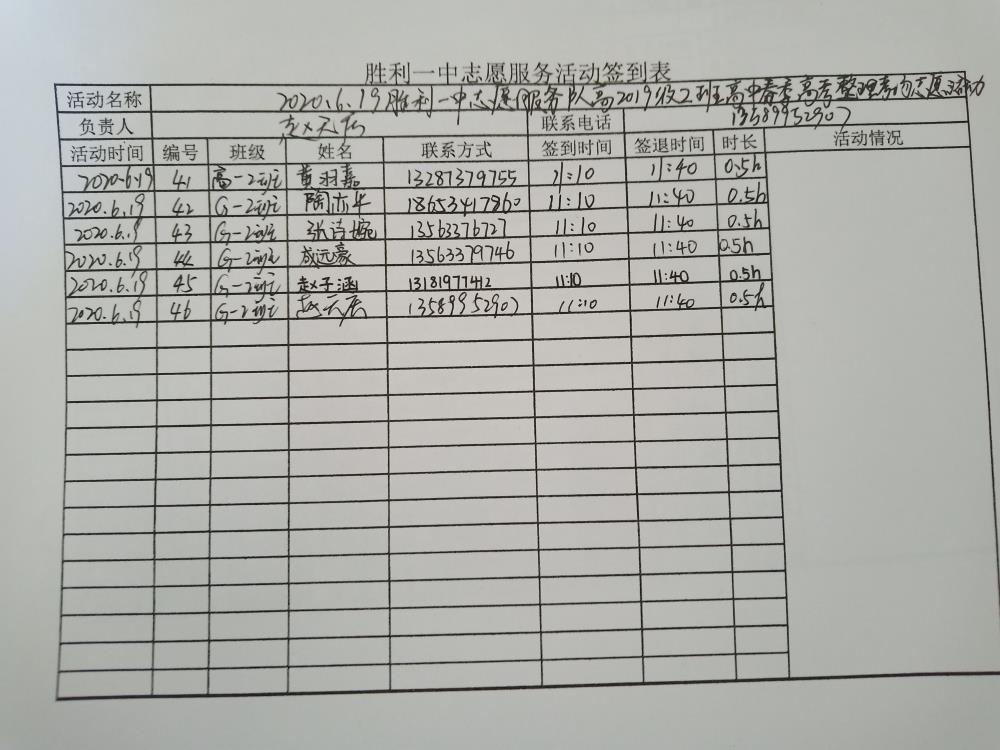 胜利一中志愿服务活动签到表
活动名称 2020.6.19胜利一中志愿服务队高2019级2班高中春季高考整理考场志愿活动
负责人 赵云辰 联系电话 13589952907
活动时间 编号 班级 姓名 联系方式 签到时间 签退时间 时长 活动情况
2020.6.19 41 高一2班 黄羽嘉 13287379755 11:10 11:40 0.5h
2020.6.19 42 G-2班 陶亦华 18653417860 11:10 11:40 0.5h
2020.6.19 43 G-2班 张诗婉 13563376727 11:10 11:40 0.5h
2020.6.19 44 G-2班 成远豪 13563379746 11:10 11:40 0.5h
2020.6.19 45 G-2班 赵子涵 13181977412 11:10 11:40 0.5h
2020.6.19 46 G-2班 赵云辰 13589952907 11:10 11:40 0.5h